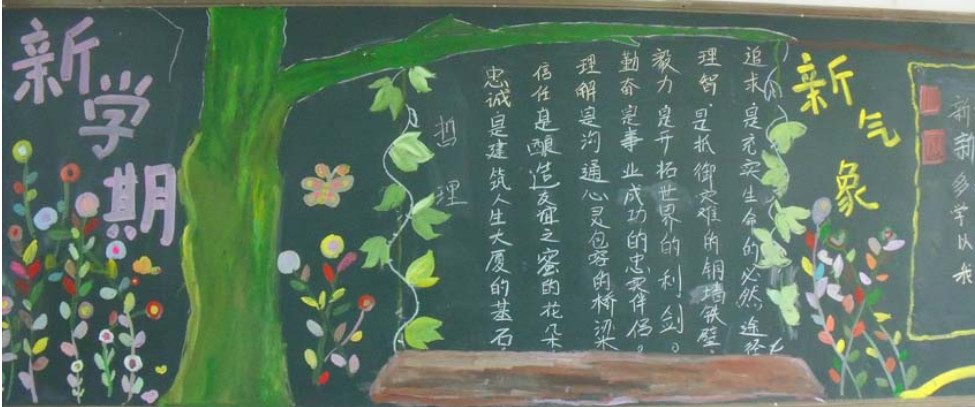 新学期
新气象
哲理
追求是充实生命的必然途径
理智,是抵御灾难的铜墙铁壁,
毅力是开拓世界的利剑。
勤奋是事业成功的忠实伴侣。
理解是沟通心灵包容的桥梁
信任是酿造友谊之蜜的花朵,
忠诚是建筑人生大厦的基石,